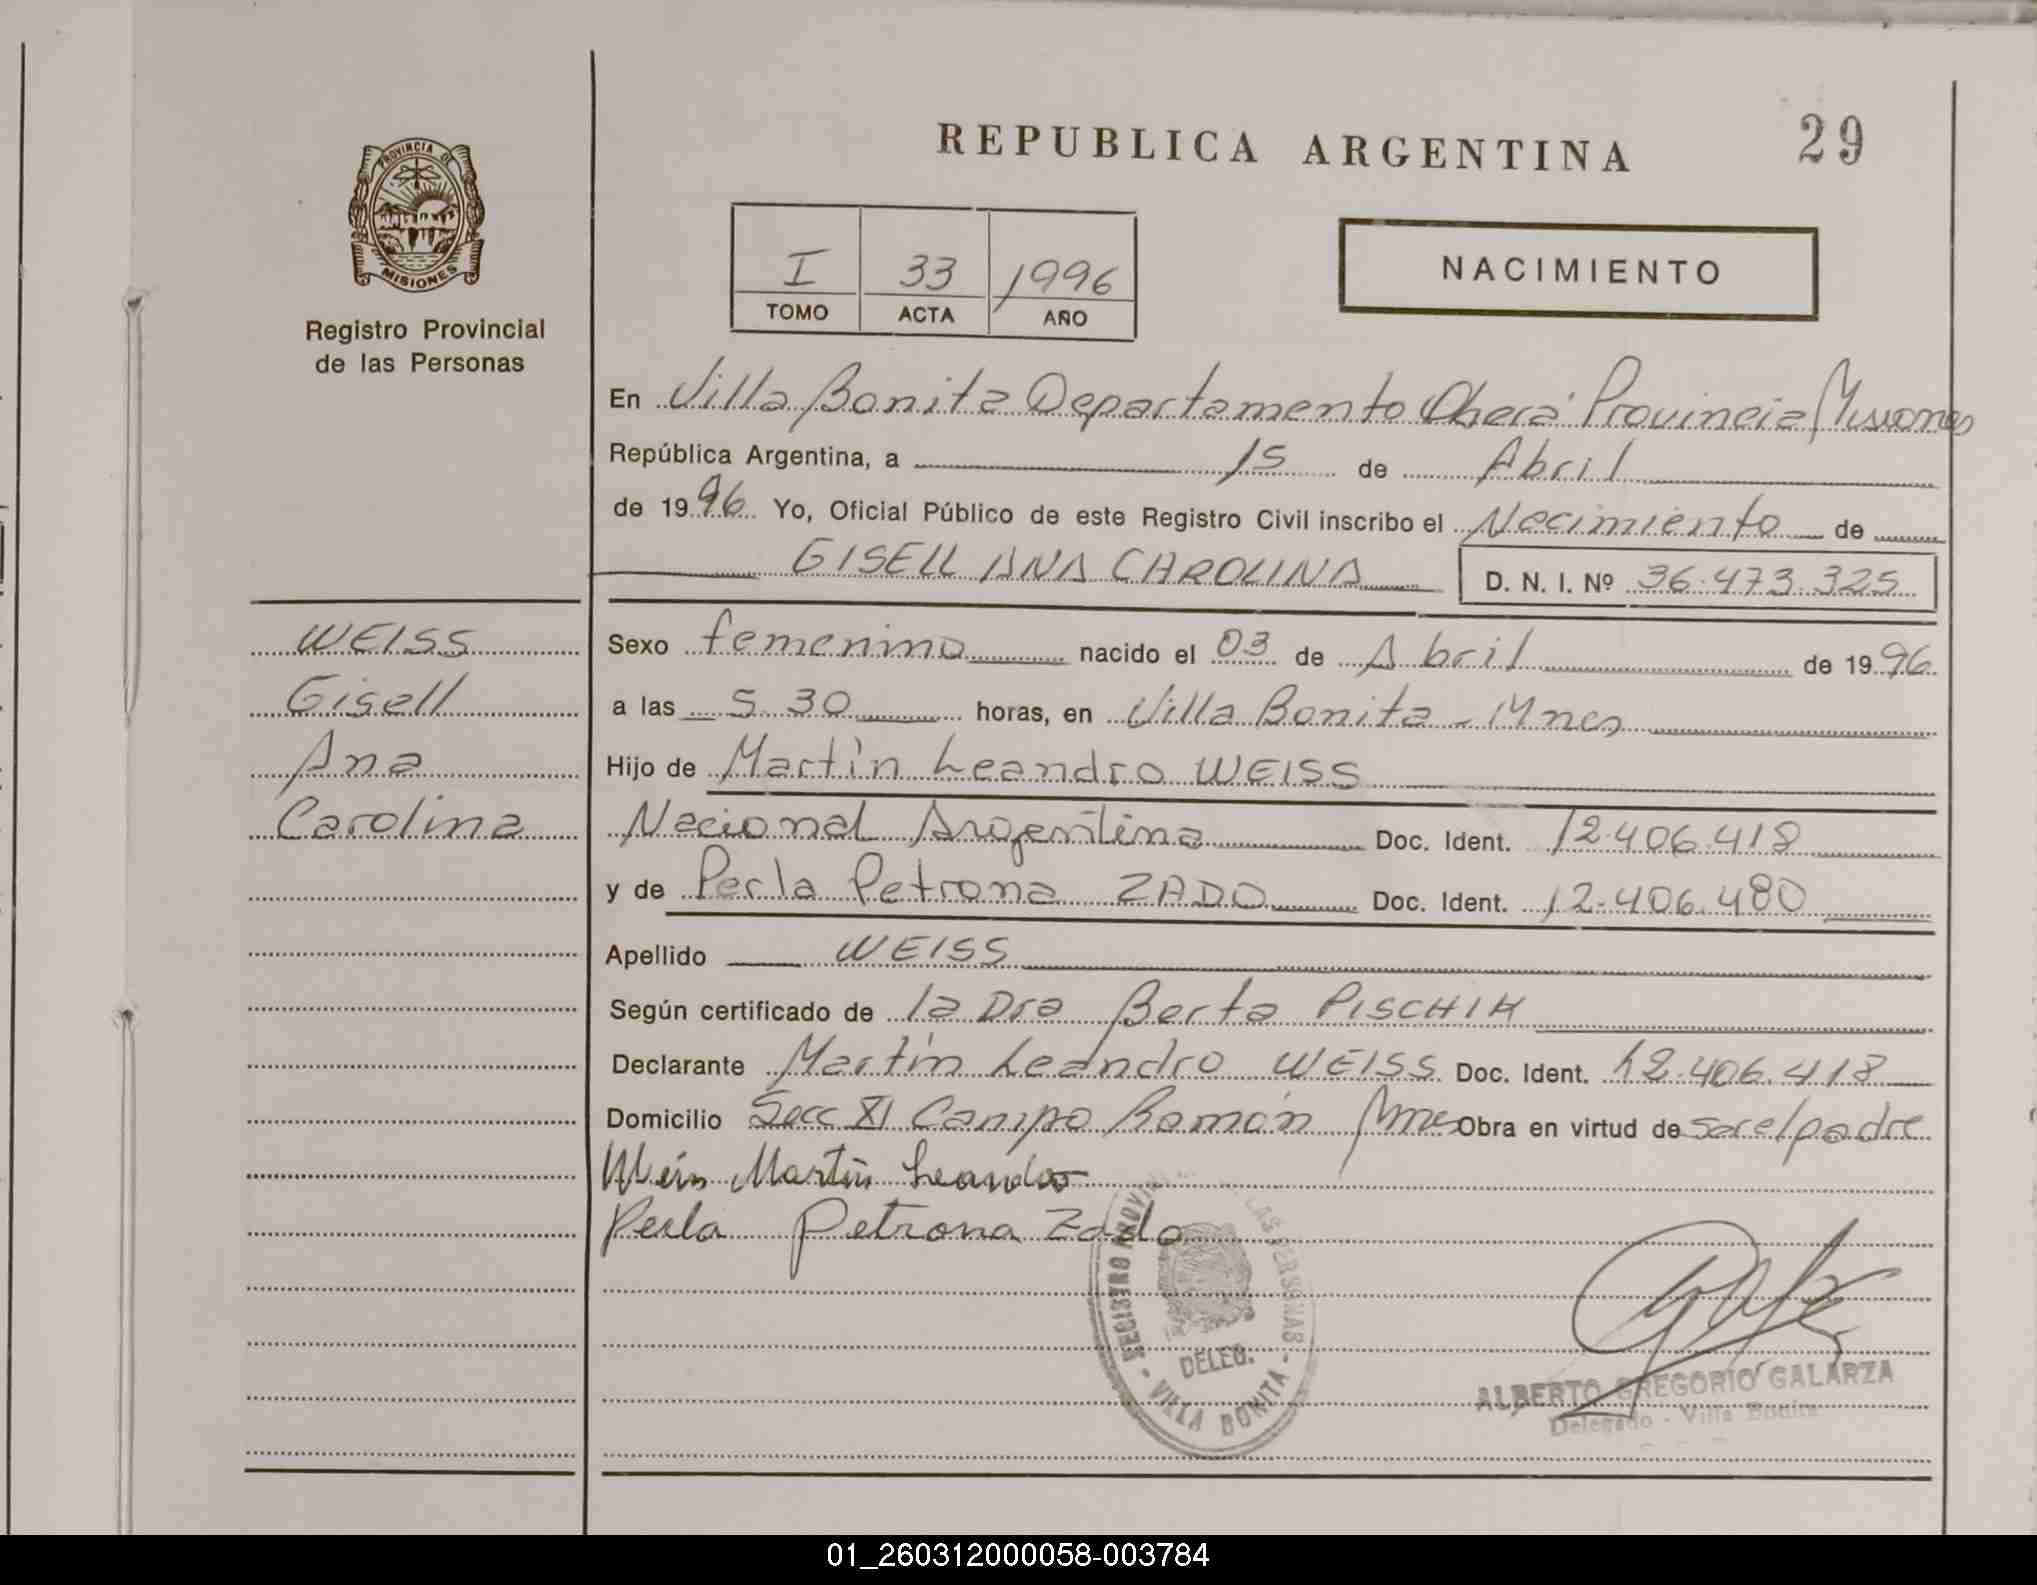 REPUBLICA ARGENTINA
29
PROVINCIA DE
MISIONES
Registro Provincial
de las Personas
I 33 1996
TOMO ACTA AÑO
NACIMIENTO
En Villa Bonita Departamento Oberá Provincia Misiones
República Argentina, a 15 de Abril
de 1996 Yo, Oficial Público de este Registro Civil inscribo el Nacimiento de
GISELL ANA CAROLINA D. N. I. Nº 36.473.325
WEISS
Gisell
Ana
Carolina
Sexo femenino nacido el 03 de Abril de 1996
a las 5.30 horas, en Villa Bonita - Mnes
Hijo de Martín Leandro WEISS
Nacional Argentina Doc. Ident. 12.406.418
y de Perla Petrona ZADO Doc. Ident. 12.406.480
Apellido WEISS
Según certificado de la Dra Berta PISCHIK
Declarante Martín Leandro WEISS Doc. Ident. 12.406.418
Domicilio Secc XI Campo Ramón Mnes Obra en virtud de ser el padre
Weis Martin Leandro
Perla Petrona Zado
REGISTRO PROV. LAS PERSONAS
DELEG.
- VILLA BONITA -
ALBERTO GREGORIO GALARZA
Delegado - Villa Bonita
01_260312000058-003784